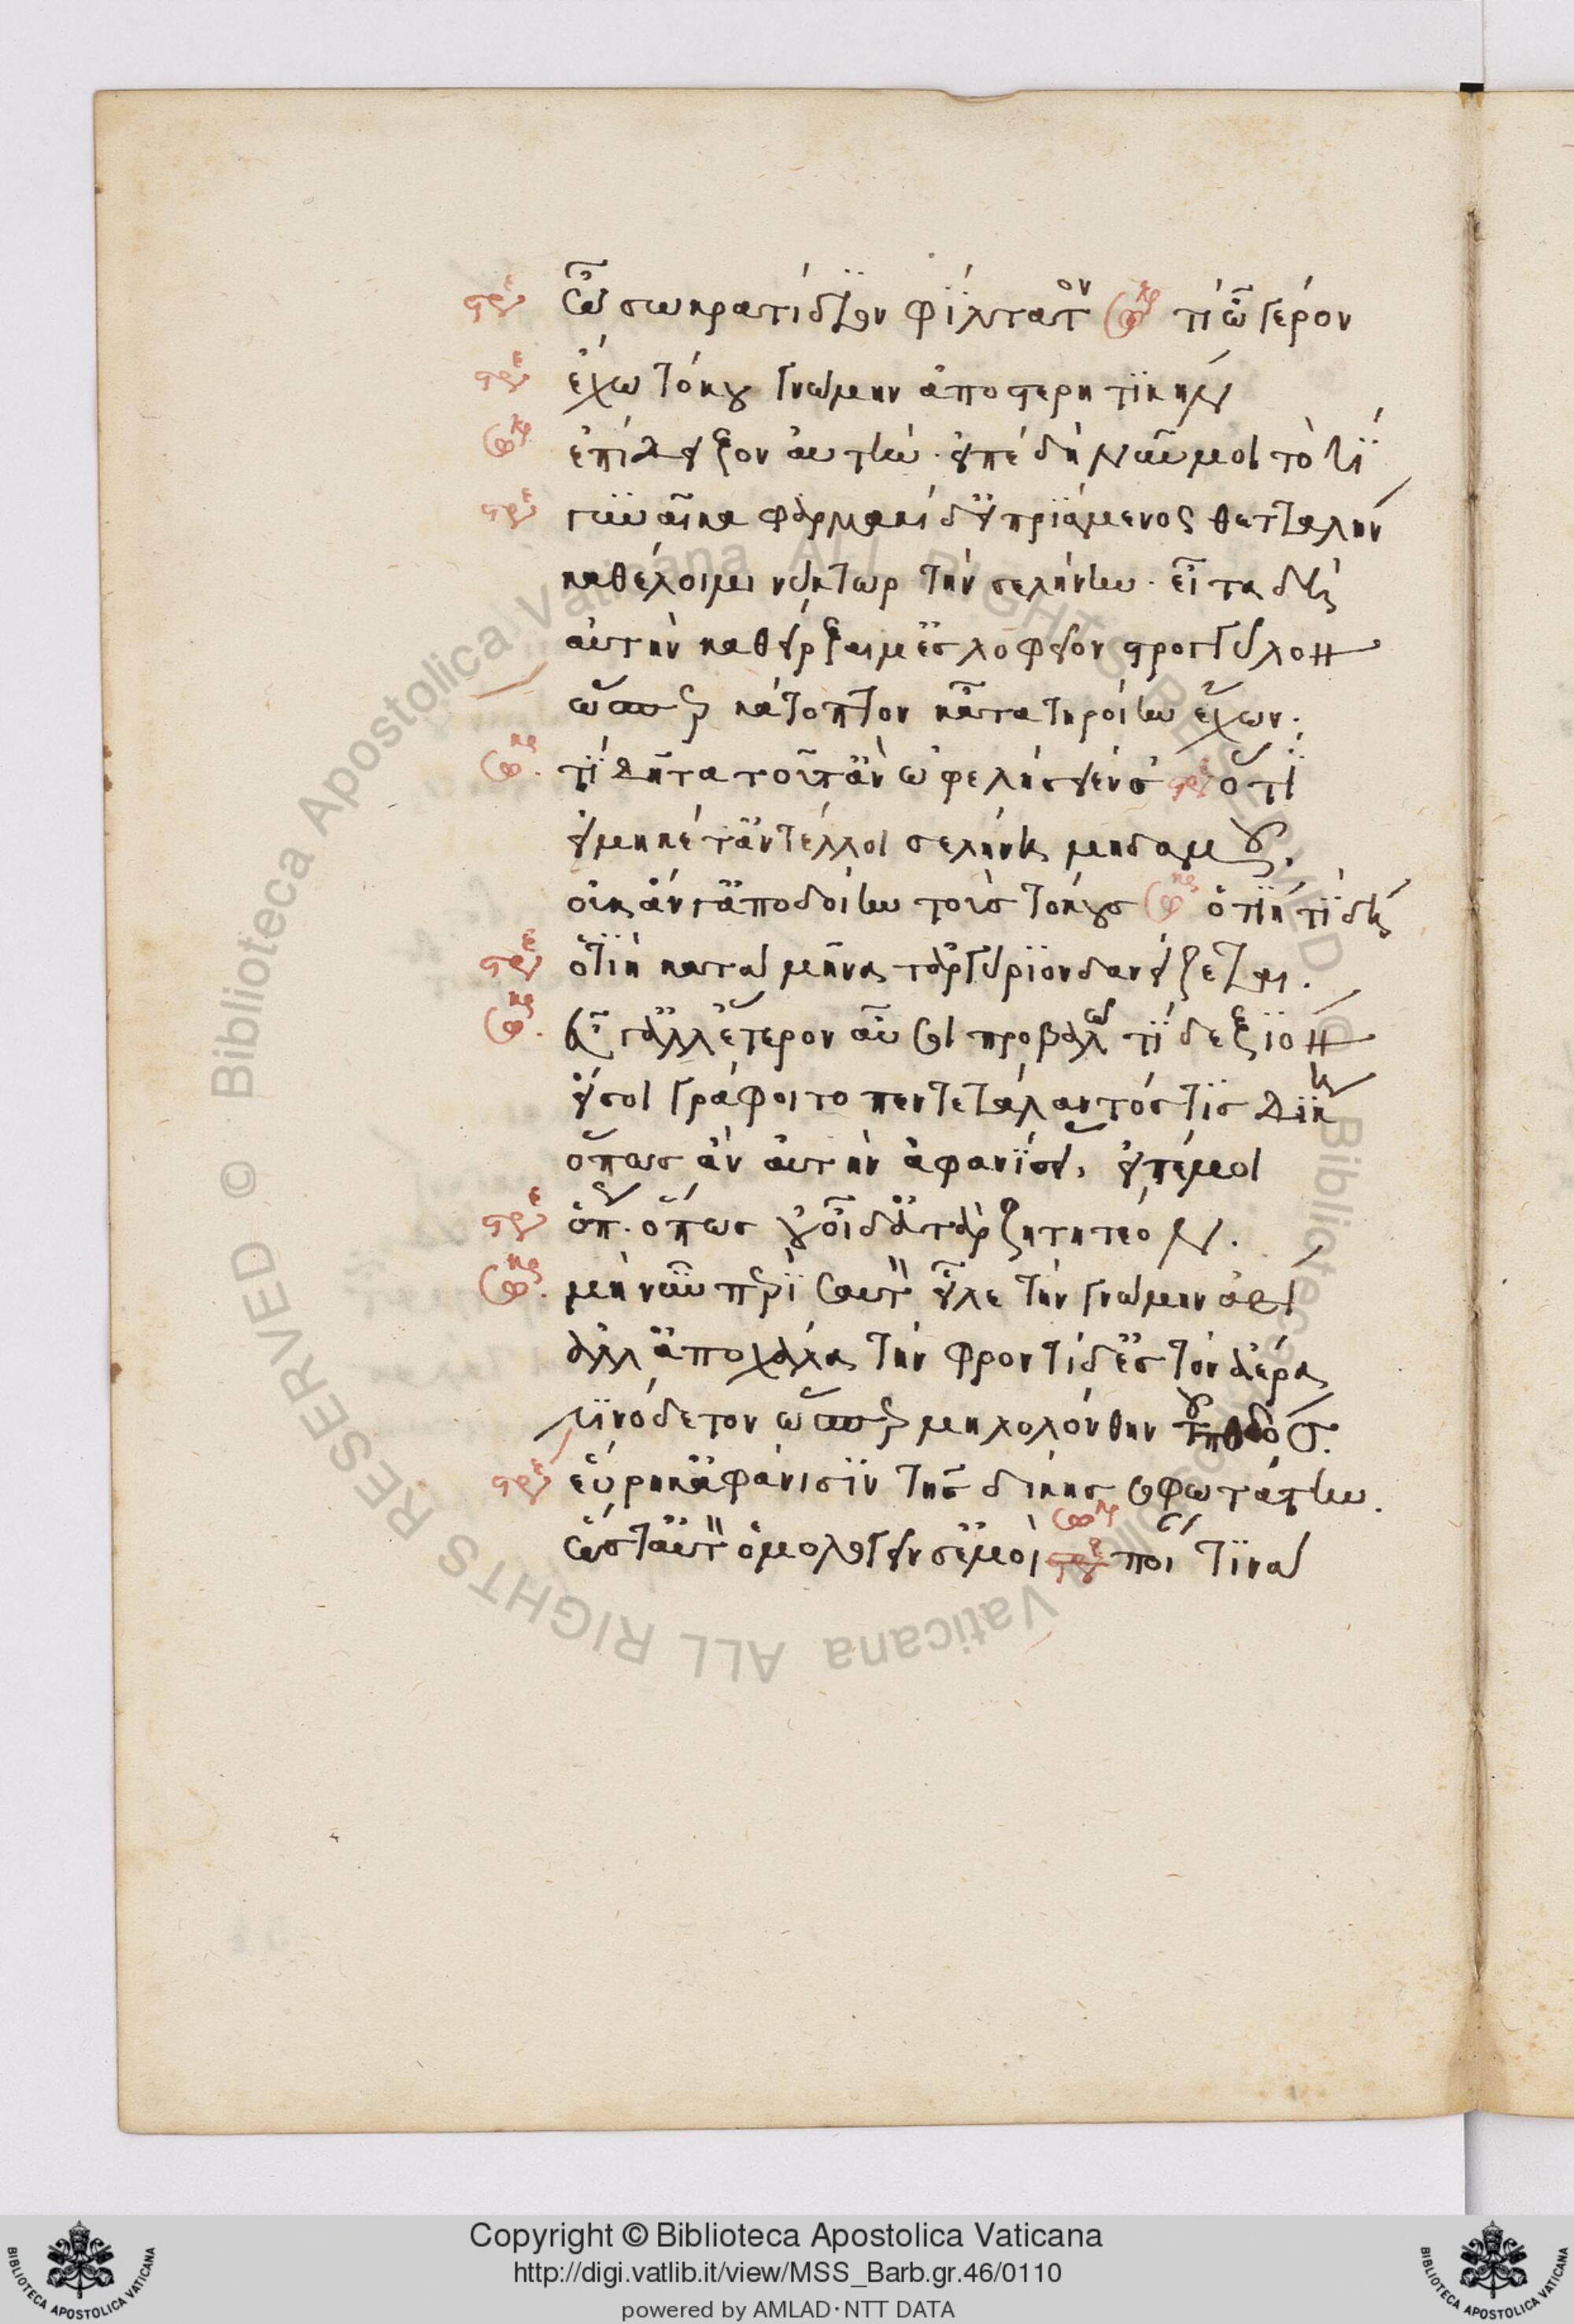 στρε ὦ σωκρατίδϊον φίλτατον σωκρ τί ὦ γέρον
στρε ἔχω τόκου γνώμην ἀποστερητικήν
σωκρ ἐπίδειξον αὐτήν. εἰπὲ δὴ νῦν μοι τὸ τί
στρε γυναῖκα φαρμακίδ' εἰ πριάμενος θετταλήν
καθέλοιμι νύκτωρ τὴν σελήνην. εἶτα δὲ
αὐτὴν καθείρξαιμ' ἐς λοφεῖον στρογγύλον
ὥσπερ κάτοπτον κᾆτα τηροίην ἔχων.
σωκρ. τί δῆτα τοῦτ' ἂν ὠφελήσειέν σ' στρε ὅ τι
εἰ μηκέτ' ἀντέλλοι σελήνη μηδαμοῦ.
οὐκ ἄν γ' ἀποδοίην τοὺς τόκους σωκρ ὁτιὴ τί δὲ
στρε ὁτιὴ κατὰ μῆνα τἀργύριον δανείζεται.
σωκρ. εὖ γ' ἀλλ' ἕτερον αὖ σοι προβαλῶ τί δεξιόν
εἴ σοι γράφοιτο πεντετάλαντός τις δίκη
ὅπως ἂν αὐτὴν ἀφανίσεις εἰπέ μοι
στρε ὅπ. ὅπως οὐκ οἶδ' ἀτὰρ ζητητέον.
σωκρ. μὴ νῦν περὶ σαυτὸν εἶλε τὴν γνώμην ἀεί
ἀλλ' ἀποχάλα τὴν φροντίδ' ἐς τὸν ἀέρα
λινόδετον ὥσπερ μηλολόνθην τοῦ ποδός.
στρε εὕρηκ' ἀφάνισιν τῆς δίκης σοφωτάτην.
ὥστ' αὐτὸν ὁμολογεῖν σ' ἐμοί σωκρ ποίαν τινά
Copyright © Biblioteca Apostolica Vaticana
http://digi.vatlib.it/view/MSS_Barb.gr.46/0110
powered by AMLAD·NTT DATA